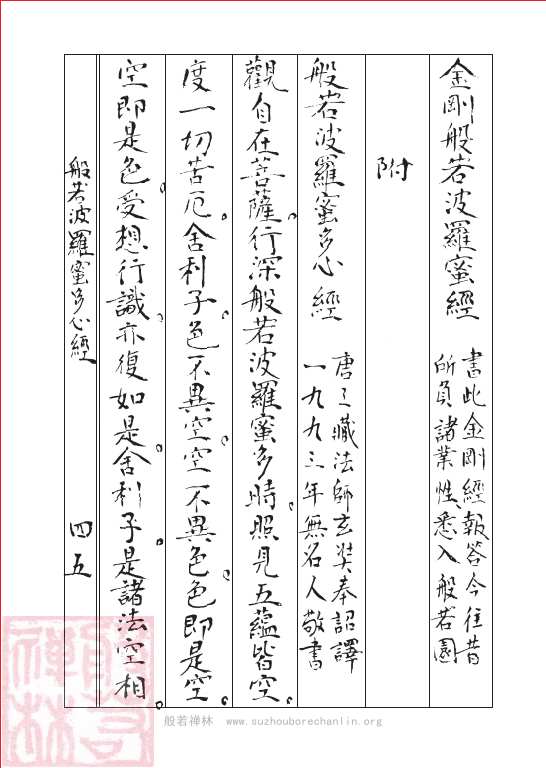 金剛般若波羅蜜經
書此金剛經報答今往昔
所負諸業性悉入般若園
附
般若波羅蜜多心經
唐三藏法師玄奘奉詔譯
一九九三年無名人敬書
觀自在菩薩。行深般若波羅蜜多時。照見五蘊皆空。
度一切苦厄。舍利子。色不異空。空不異色。色即是空。
空即是色。受想行識。亦復如是。舍利子。是諸法空相。
般若波羅蜜多心經 四五
般若禅林
般若禅林 www.suzhouborechanlin.org